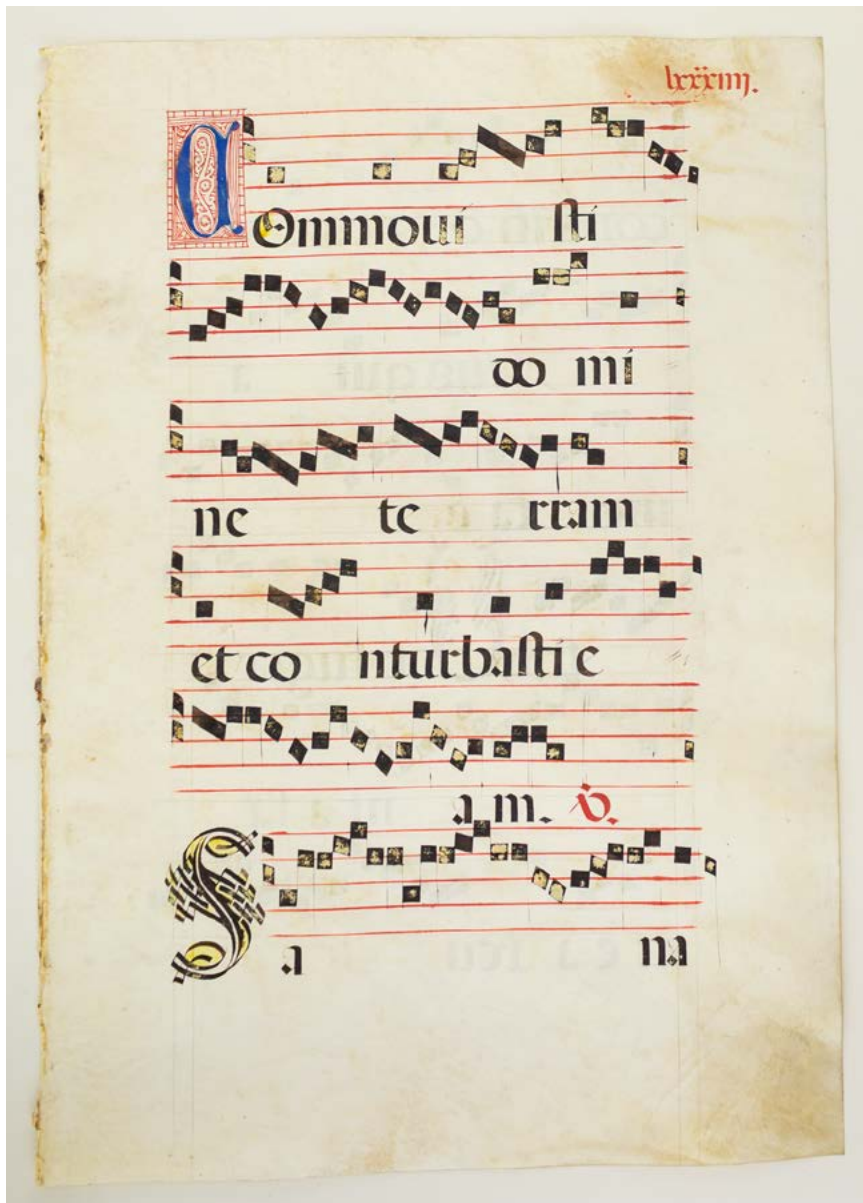 lxxxiiij.
COmmoui sti
do mi
ne te rram
et co nturbasti e
a m. V.
S a na